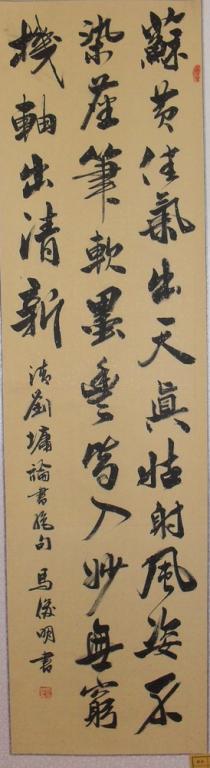 蘇黄佳氣出天真姑射風姿不
染塵筆軟墨豐皆入妙無窮
機軸出清新
清劉墉論書絶句 馬俊明書